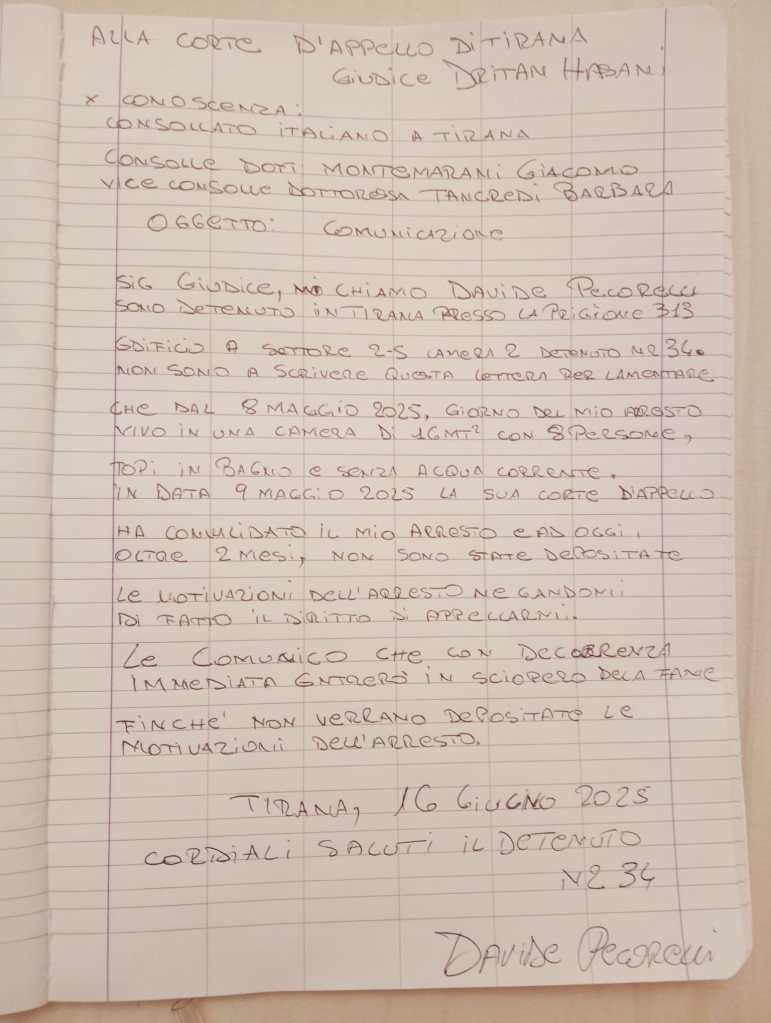 ALLA CORTE D'APPELLO DI TIRANA
GIUDICE DRITAN HABANI
x CONOSCENZA:
CONSOLLATO ITALIANO A TIRANA
CONSOLLE DOTT MONTEMARANI GIACOMO
VICE CONSOLLE DOTTORESSA TANCREDI BARBARA
OGGETTO: COMUNICAZIONE
SIG GIUDICE, MI CHIAMO DAVIDE PECORELLI
SONO DETENUTO IN TIRANA PRESSO LA PRIGIONE 313
EDIFICIO A SETTORE 2-S CAMERA 2 DETENUTO NR 34.
NON SONO A SCRIVERE QUESTA LETTERA PER LAMENTARE
CHE DAL 8 MAGGIO 2025, GIORNO DEL MIO ARRESTO
VIVO IN UNA CAMERA DI 16MT² CON 8 PERSONE,
TOPI IN BAGNO E SENZA ACQUA CORRENTE.
IN DATA 9 MAGGIO 2025 LA SUA CORTE D'APPELLO
HA CONVALIDATO IL MIO ARRESTO E AD OGGI,
OLTRE 2 MESI, NON SONO STATE DEPOSITATE
LE MOTIVAZIONI DELL'ARRESTO NEGANDOMI
DI FATTO IL DIRITTO DI APPELLARMI.
LE COMUNICO CHE CON DECORRENZA
IMMEDIATA ENTRERÒ IN SCIOPERO DELA FAME
FINCHE' NON VERRANO DEPOSITATE LE
MOTIVAZIONI DELL'ARRESTO.
TIRANA, 16 GIUGNO 2025
CORDIALI SALUTI IL DETENUTO
NR 34
DAVIDE PECORELLI